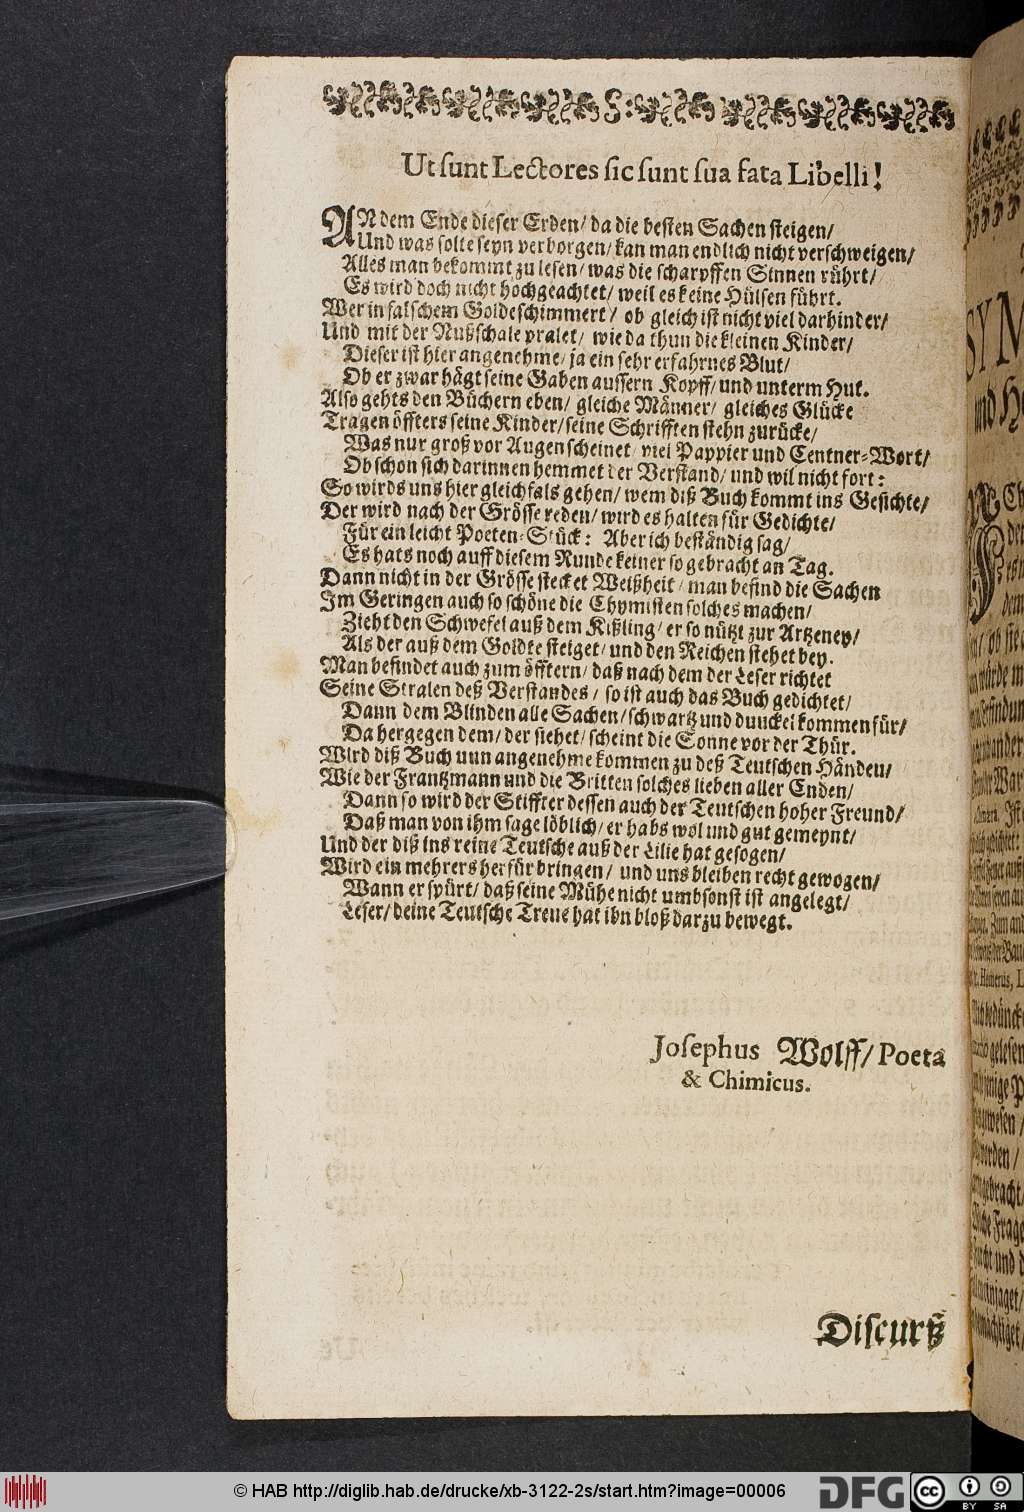 Ut ſunt Lectores ſic ſunt ſua fata Libelli!
AN dem Ende dieſer Erden/ da die beſten Sachen ſteigen/
Und was ſolte ſeyn verborgen/ kan man endlich nicht verſchweigen/
Alles man bekommt zu leſen/ was die ſcharpffen Sinnen rührt/
Es wird doch nicht hochgeachtet/ weil es keine Hülſen führt.
Wer in falſchem Golde ſchimmert/ ob gleich iſt nicht viel darhinder/
Und mit der Nußſchale pralet/ wie da thun die kleinen Kinder/
Dieſer iſt hier angenehme/ ja ein ſehr erfahrnes Blut/
Ob er zwar hägt ſeine Gaben auſſern Kopff/ und unterm Hut.
Alſo gehts den Büchern eben/ gleiche Männer/ gleiches Glücke
Tragen öffters ſeine Kinder/ ſeine Schrifften ſtehn zurücke/
Was nur groß vor Augen ſcheinet/ viel Pappier und Centner-Wort/
Ob ſchon ſich darinnen hemmet der Verſtand/ und wil nicht fort:
So wirds uns hier gleichfals gehen/ wem diß Buch kommt ins Geſichte/
Der wird nach der Gröſſe reden/ wird es halten für Gedichte/
Für ein leicht Poeten-Stück: Aber ich beſtändig ſag/
Es hats noch auff dieſem Runde keiner ſo gebracht an Tag.
Dann nicht in der Gröſſe ſtecket Weißheit/ man befind die Sachen
Im Geringen auch ſo ſchöne die Chymiſten ſolches machen/
Zieht den Schwefel auß dem Kißling/ er ſo nützt zur Artzeney/
Als der auß dem Goldte ſteiget/ und den Reichen ſtehet bey.
Man befindet auch zum öfftern/ daß nach dem der Leſer richtet
Seine Stralen deß Verſtandes/ ſo iſt auch das Buch gedichtet/
Dann dem Blinden alle Sachen/ ſchwartz und dunckel kommen für/
Da hergegen dem/ der ſiehet/ ſcheint die Sonne vor der Thür.
Wird diß Buch nun angenehme kommen zu deß Teutſchen Händen/
Wie der Frantzmann und die Britten ſolches lieben aller Enden/
Dann ſo wird der Stiffter deſſen auch der Teutſchen hoher Freund/
Daß man von ihm ſage löblich/ er habs wol und gut gemeynt/
Und der diß ins reine Teutſche auß der Lilie hat geſogen/
Wird ein mehrers herfür bringen/ und uns bleiben recht gewogen/
Wann er ſpürt/ daß ſeine Mühe nicht umbſonſt iſt angelegt/
Leſer/ deine Teutſche Treue hat ihn bloß darzu bewegt.
Joſephus Wolff/ Poeta
& Chimicus.
Diſcurß
© HAB http://diglib.hab.de/drucke/xb-3122-2s/start.htm?image=00006
DFG
cc BY SA